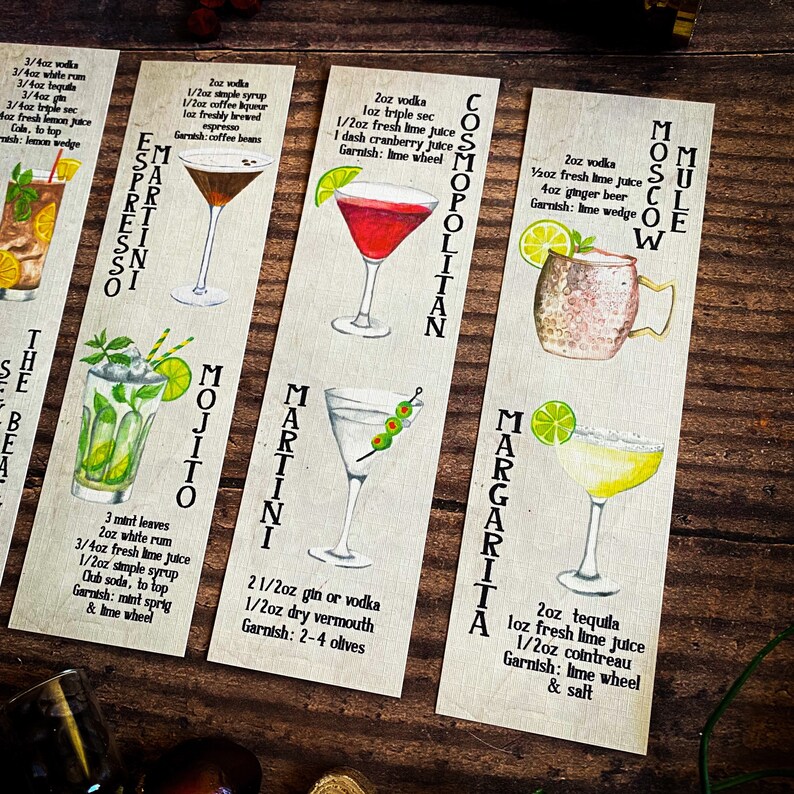 3/4oz vodka
3/4oz white rum
3/4oz tequila
3/4oz gin
3/4oz triple sec
fresh lemon juice
Cola, to top
lemon wedge
THE
BEA
2oz vodka
1/2oz simple syrup
1/2oz coffee liqueur
1oz freshly brewed
espresso
Garnish: coffee beans
ESPRESSO
MARTINI
MOJITO
3 mint leaves
2oz white rum
3/4oz fresh lime juice
1/2oz simple syrup
Club soda, to top
Garnish: mint sprig
& lime wheel
2oz vodka
1oz triple sec
1/2oz fresh lime juice
1 dash cranberry juice
Garnish: lime wheel
COSMOPOLITAN
MARTINI
2 1/2oz gin or vodka
1/2oz dry vermouth
Garnish: 2-4 olives
MOSCOW
MULE
2oz vodka
½oz fresh lime juice
4oz ginger beer
Garnish: lime wedge
MARGARITA
2oz tequila
1oz fresh lime juice
1/2oz cointreau
Garnish: lime wheel
& salt